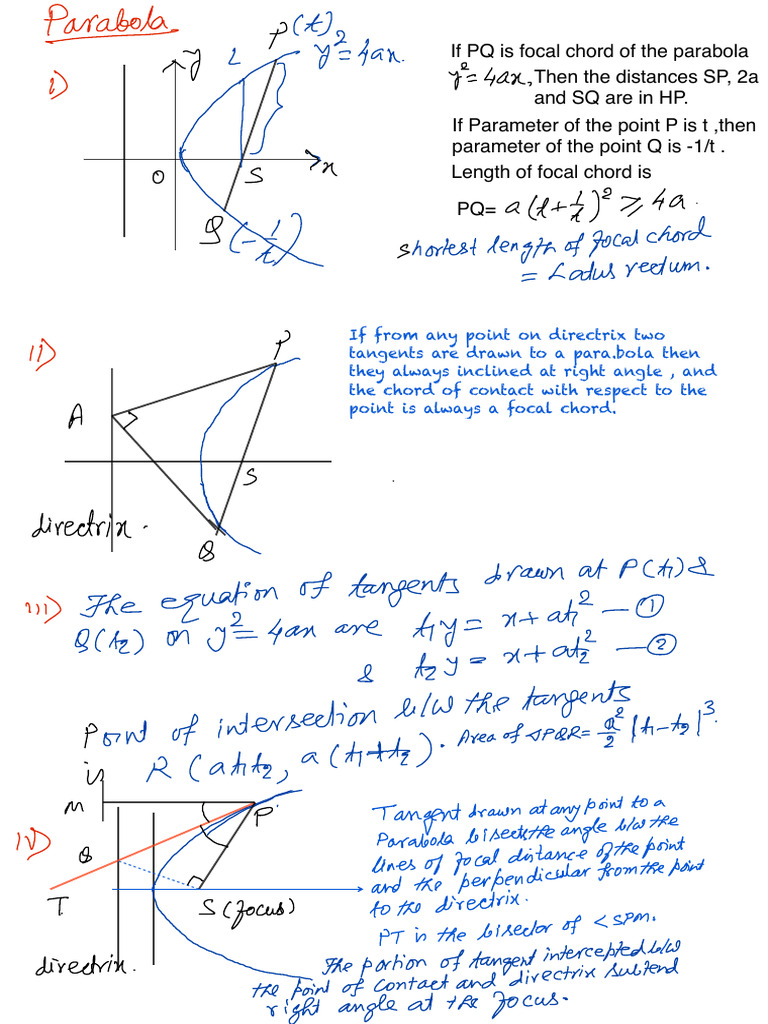 Parabola
i)
y
L
P(t)
y²=4ax.
O
S
x
Q(-1/t)
If PQ is focal chord of the parabola
y²=4ax, Then the distances SP, 2a
and SQ are in HP.
If Parameter of the point P is t ,then
parameter of the point Q is -1/t .
Length of focal chord is
PQ= a(t+1/t)² ≥ 4a.
Shortest length of focal chord
= Latus rectum.
ii)
P
A
S
Q
directrix.
If from any point on directrix two
tangents are drawn to a para.bola then
they always inclined at right angle , and
the chord of contact with respect to the
point is always a focal chord.
iii) The equation of tangents drawn at P(t₁) &
Q(t₂) on y²=4ax are t₁y = x+at₁² —①
& t₂y = x+at₂² —②
Point of intersection b/w the tangents
is R(at₁t₂, a(t₁+t₂). Area of △PQR= a²/2 |t₁-t₂|³.
iv)
M
P
Q
T
S(focus)
directrix.
Tangent drawn at any point to a
Parabola bisects the angle b/w the
lines of focal distance of the point
and the perpendicular from the point
to the directrix.
PT is the bisector of <SPM.
The portion of tangent intercepted b/w
the point of contact and directrix subtend
right angle at the focus.